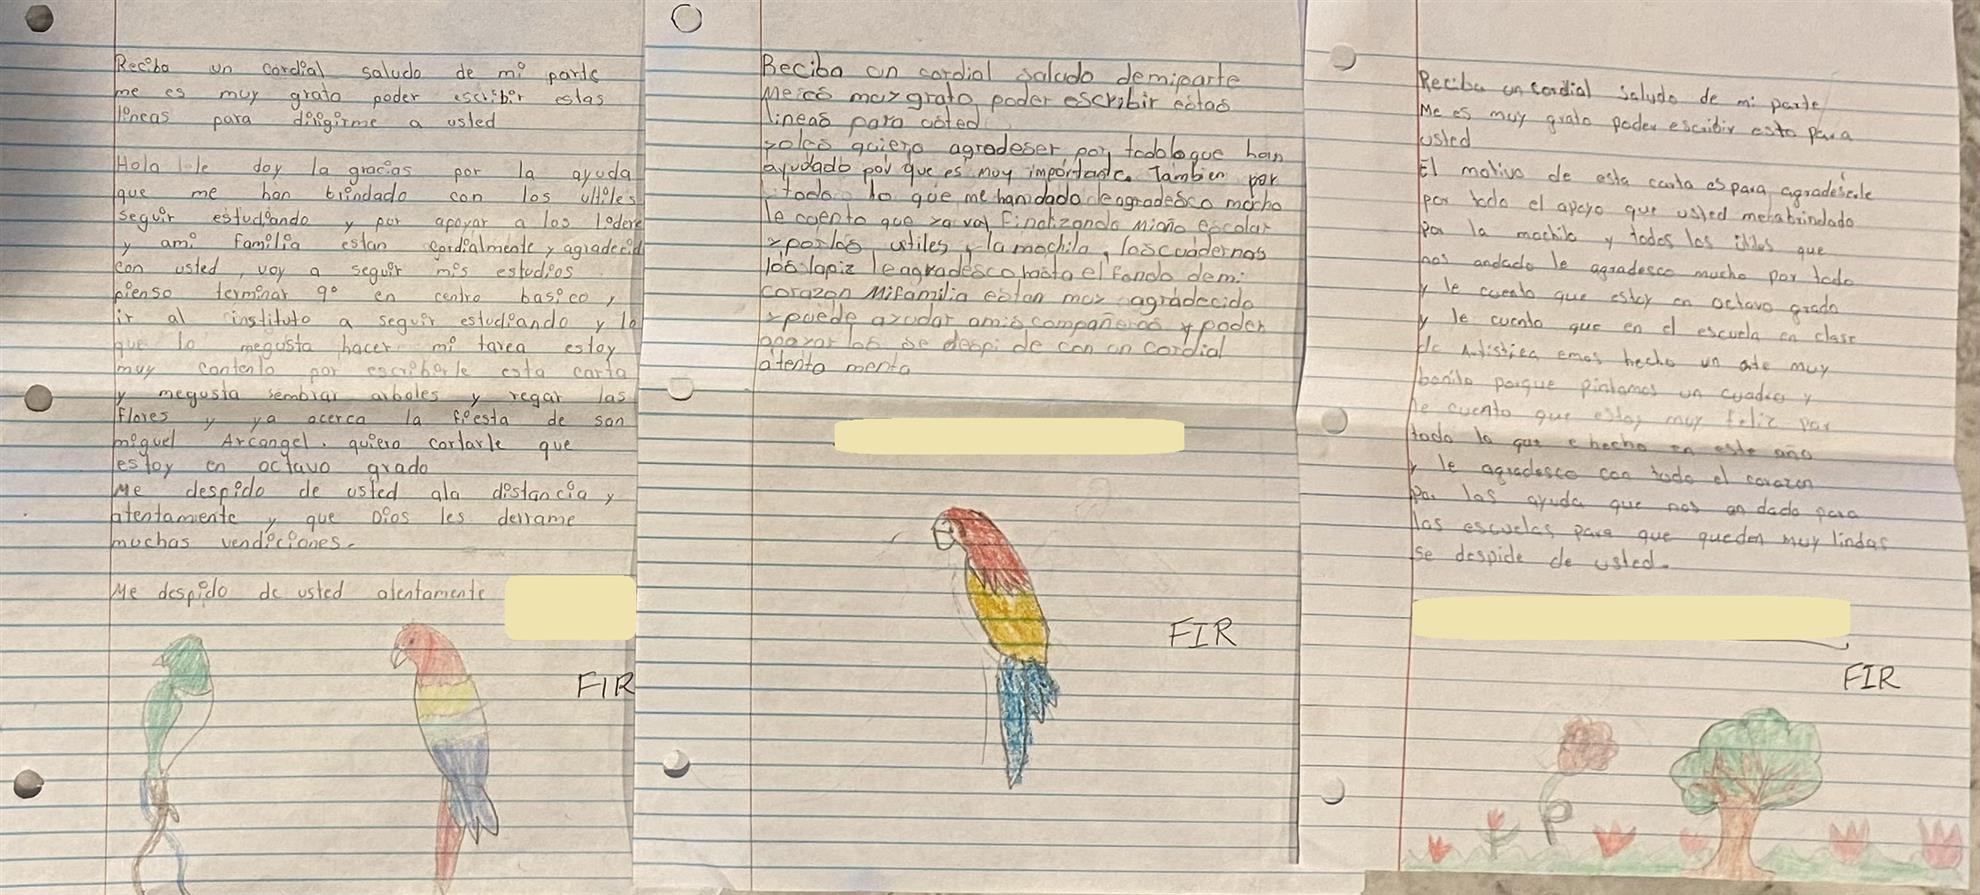 Reciba un cordial saludo de mi parte
me es muy grato poder escribir estas
líneas para diligirme a usted
Hola le doy la gracias por la ayuda
que me han brindado con los utiles
seguir estudiando y por apoyar a los lodere
y ami familia estan cordialmente y agradecid
con usted, voy a seguir mis estudios
pienso terminar 9° en centro basico y
ir al instituto a seguir estudiando y lo
que lo megusta hacer mi tarea estoy
muy contento por escribirle esta carta
y megusta sembrar arboles y regar las
flores y ya acerca la fiesta de san
miguel Arcangel. quiero contarle que
estoy en octavo grado
Me despido de usted ala distancia y
atentamente y que Dios les derrame
muchas vendiciones.
Me despido de usted atentamente
FIR
Reciba un cordial saludo demiparte
Mees muy grato poder escribir estas
lineas para usted
yoles quiero agradeser por todoloque han
ayudado por que es muy importante. Tambien por
todo lo que me handado leagradesco mucho
le cuento que ya voy finalizando miaño escolar
y porlos utiles y la mochila, loscuadernos
los lapiz leagradesco hasta el fondo demi
corazon Mifamilia estan muy agradecido
y puede ayudar amis compañeros y poder
apoyar los se despi de con un cordial
atenta menta
FIR
Reciba un cordial saludo de mi parte
Me es muy grato poder escribir esto para
usted
El motivo de esta carta es para agradeserle
por todo el apoyo que usted mehabrindado
Por la mochila y todos los utiles que
nos andado le agradesco mucho por todo
y le cuento que estoy en octavo grado
y le cuento que en el escuela en clase
de Artistica emos hecho un arte muy
bonito porque pintamos un cuadro y
le cuento que estoy muy feliz por
todo lo que e hecho en este año
y le agradesco con todo el corazon
Por las ayuda que nos an dado para
las escuelas para que queden muy lindas
se despide de usted.
FIR